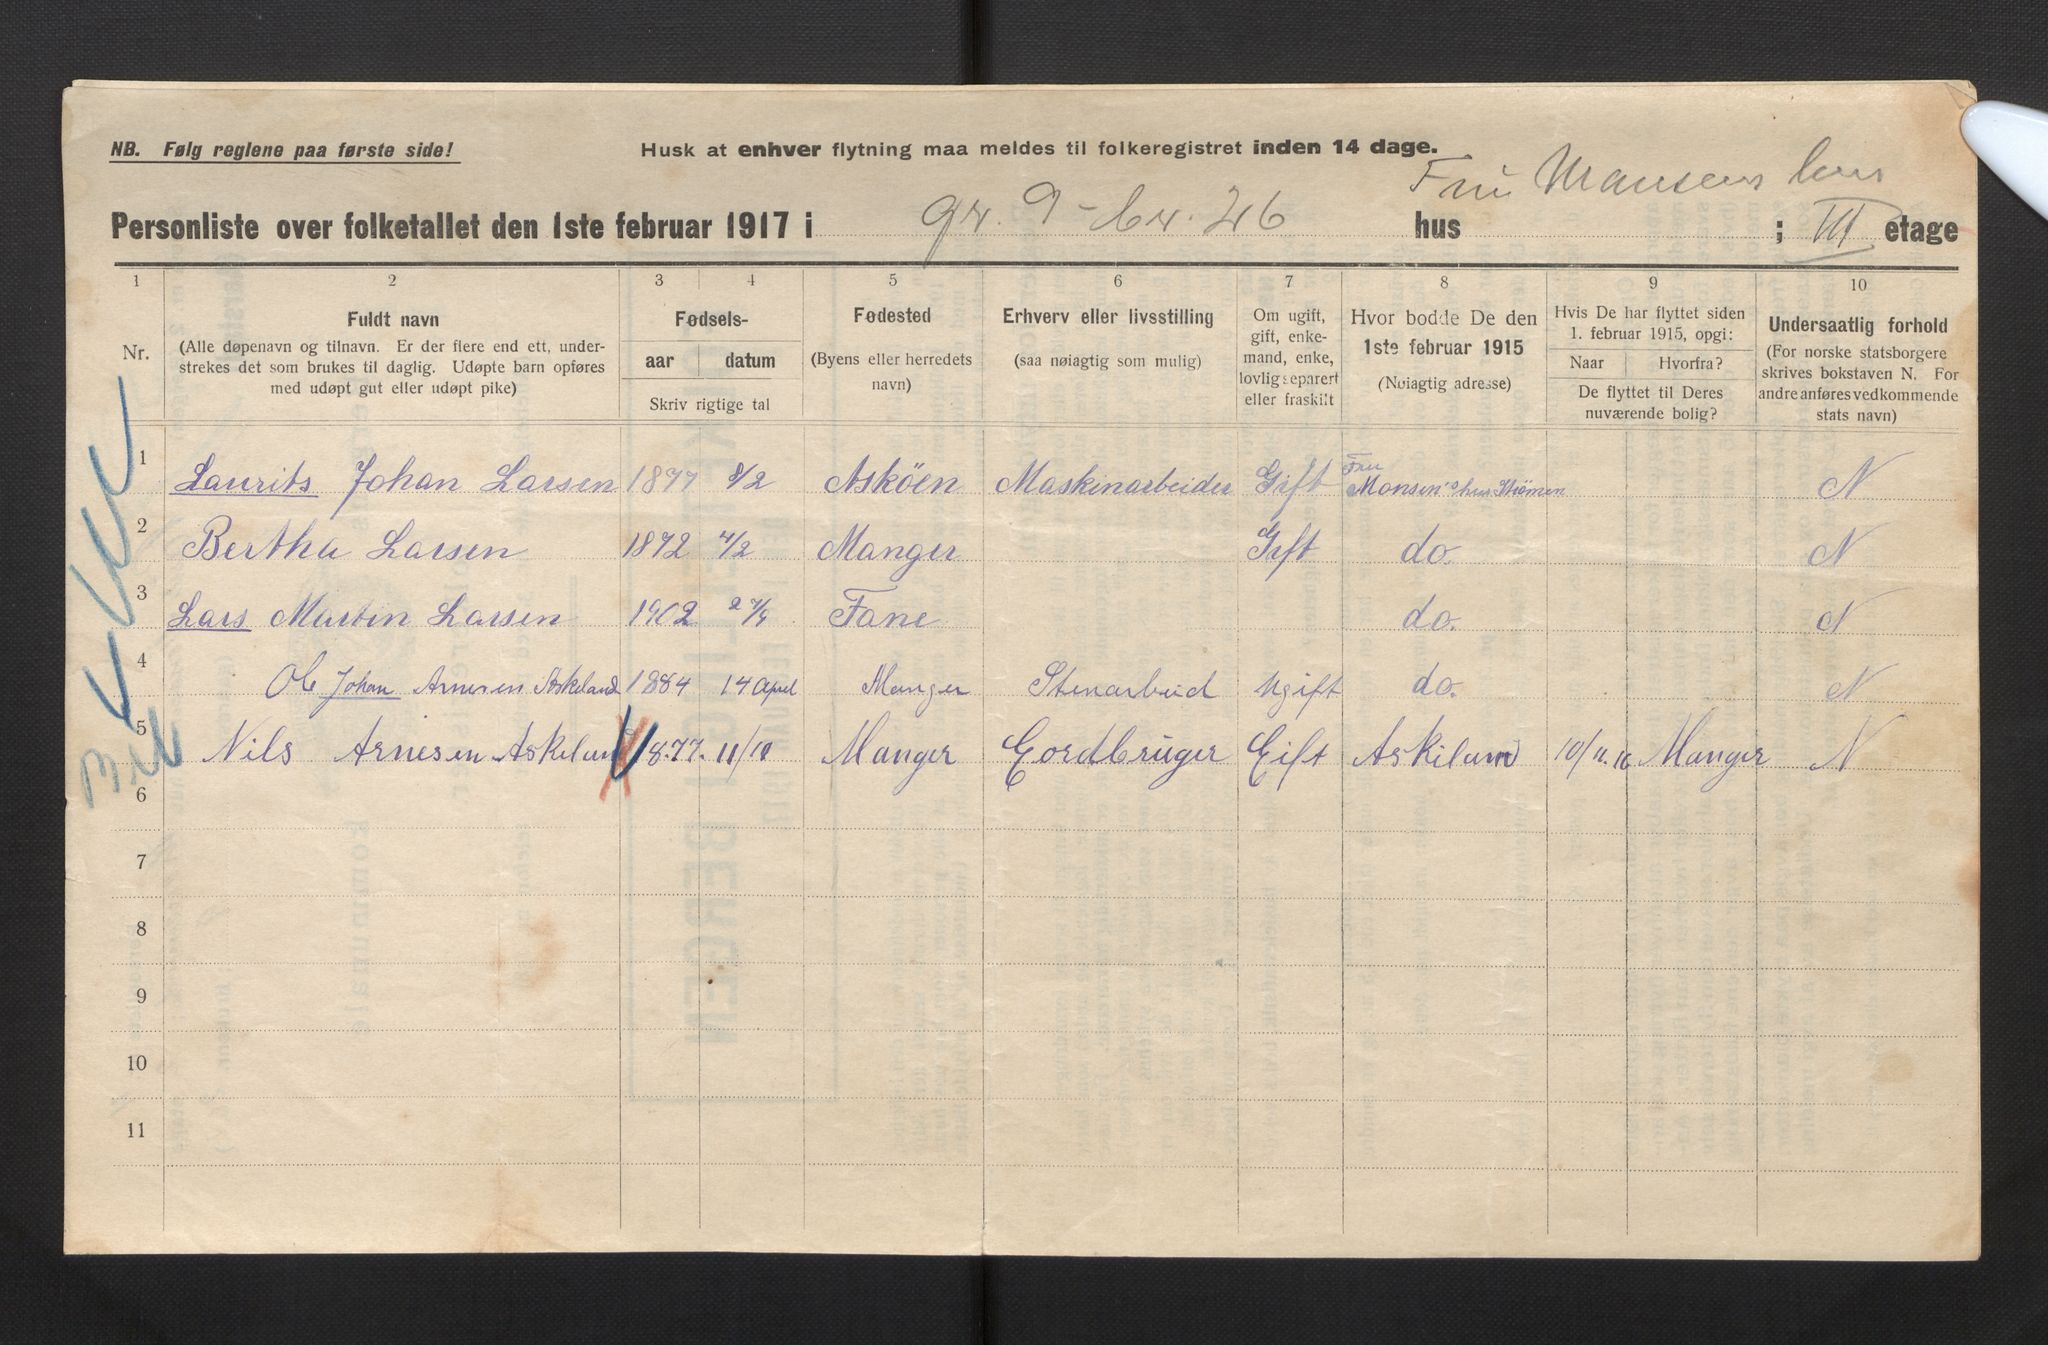 NB. Følg reglene paa første side! Husk at enhver flytning maa meldes til folkeregistret inden 14 dage.
Personliste over folketallet den 1ste februar 1917 i gr. 9 - br. 26 hus Fru Monsens hus ; III etage
1 2 3 4 5 6 7 8 9 10
Nr.
Fuldt navn
(Alle døpenavn og tilnavn. Er der flere end ett, under-
strekes det som brukes til daglig. Udøpte barn opføres
med udøpt gut eller udøpt pike)
Fødsels-
aar datum
Skriv rigtige tal
Fødested
(Byens eller herredets
navn)
Erhverv eller livsstilling
(saa nøiagtig som mulig)
Om ugift,
gift, enke-
mand, enke,
lovlig separert
eller fraskilt
Hvor bodde De den
1ste februar 1915
(Nøiagtig adresse)
Hvis De har flyttet siden
1. februar 1915, opgi:
Naar Hvorfra?
De flyttet til Deres
nuværende bolig?
Undersaatlig forhold
(For norske statsborgere
skrives bokstaven N. For
andre anføres vedkommende
stats navn)
1 Laurits Johan Larsen 1877 8/2 Asköen Maskinarbeider Gift Fru Monsen's hus Strömen N
2 Bertha Larsen 1872 4/2 Manger Gift do. N
3 Lars Martin Larsen 1902 Fane do. N
4 Ole Johan Arnesen Askeland 1884 14 April Manger Stenarbeid Ugift do. N
5 Nils Arnesen Askeland 1877. 11/10 Manger Gordbruger Gift Askiland 10/11.16 Manger N
6
7
8
9
10
11